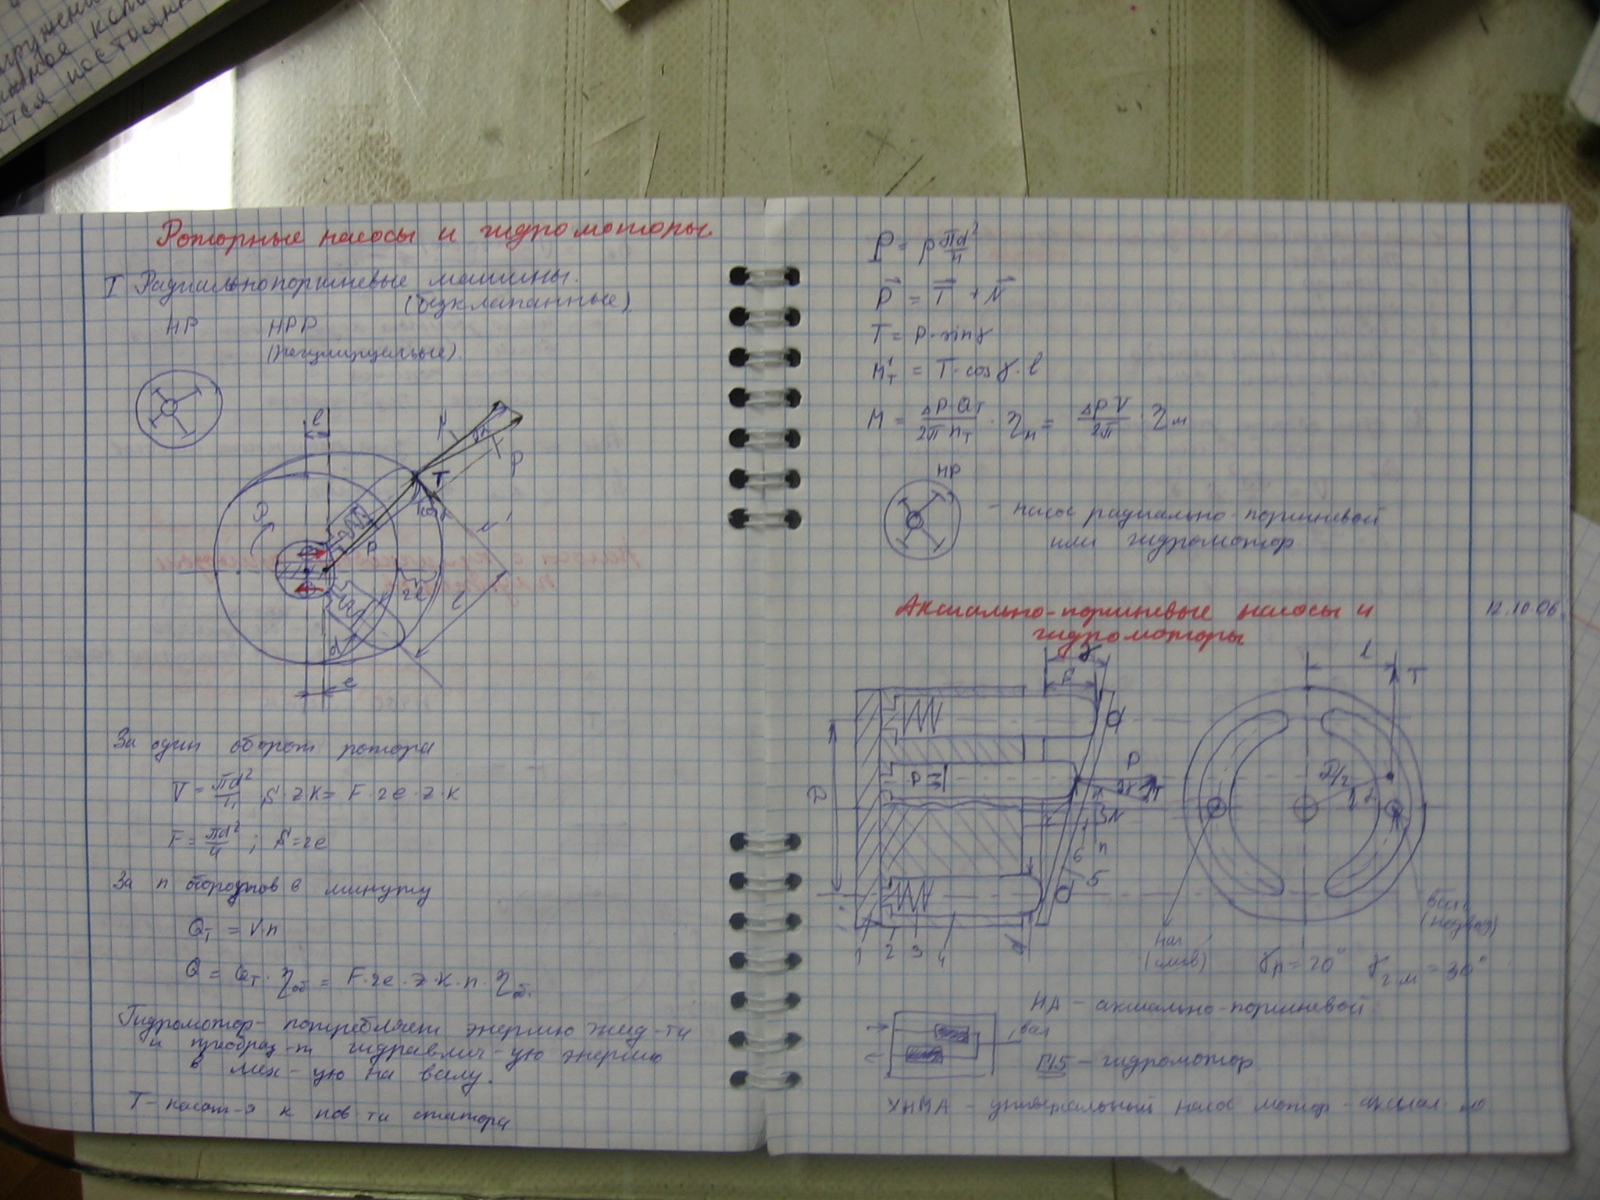 Роторные насосы и гидромоторы.
I Радиальнопоршневые машины.
(безклапанные)
НР НРР
(регулируемые)
e
N
P
T
N'
P
2e
l
d
e
За один оборот ротора
V = πd²/4 · S · z · k = F · 2e · z · k
F = πd²/4 ; S = 2e
За n оборотов в минуту
Qт = V·n
Q = Qт · ηоб = F · 2e · z · k · n · ηоб.
Гидромотор - потребляет энергию жид-ти
и преобраз-т гидравлич-ую энергию
в мех-ую на валу.
T - касат-я к пов-ти статора
P = p πd²/4
P = T + N
T = P · sin γ
M'т = T · cos γ · l
M = ΔP · Qт / 2π nт · ηм = ΔP V / 2π · ηм
НР
- насос радиально-поршневой
или гидромотор
12.10.06.
Аксиально-поршневые насосы и
гидромоторы
γ
l
T
D
P
P
T
N
6
5
1 2 3 4
d
наг
(слив)
γн = 20° γг.м = 30°
НА - аксиально-поршневой
вал
Г15 - гидромотор
УНМА - универсальный насос мотор - аксиал